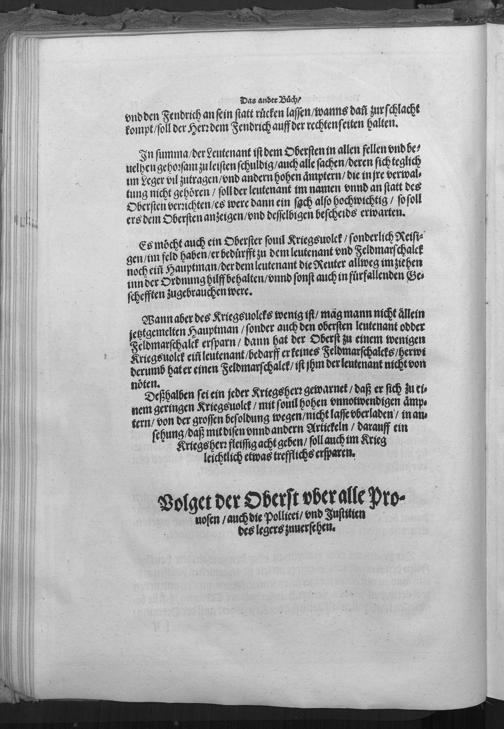 Das ander Bůch/
vnd den Fendrich an sein statt rücken lassen/wanns dañ zur schlacht
kompt/soll der Herr dem Fendrich auff der rechten seiten halten.
In summa/der Leutenant ist dem Obersten in allen fellen vnd be-
uelhen gehorsam zu leisten schuldig/auch alle sachen/deren sich teglich
im Leger vil zutragen/vnd andern hohen ämptern/die in jre verwal-
tung nicht gehören/soll der leutenant im namen vnnd an statt des
Obersten verrichten/es were dann ein sach also hochwichtig/so soll
ers dem Obersten anzeigen/vnd desselbigen bescheids erwarten.
Es möcht auch ein Oberster souil Kriegsuolck/sonderlich Reisi-
gen/im feld haben/er bedürfft zu dem leutenant vnd Feldmarschalck
noch ein Hauptman/der dem leutenant die Reuter allweg im ziehen
inn der Ordnung hilff behalten/vnnd sonst auch in fürfallenden Ge-
schefften zugebrauchen were.
Wann aber des Kriegsuolcks wenig ist/mag mann nicht allein
jetztgemelten Hauptman/sonder auch den obersten leutenant odder
Feldmarschalck ersparn/dann hat der Oberst zu einem wenigen
Kriegsuolck ein leutenant/bedarff er keines Feldmarschalcks/herwi
derumb hat er einen Feldmarschalck/ist jhm der leutenant nicht von
nöten.
Deßhalben sei ein jeder Kriegsherr gewarnet/daß er sich zu ei-
nem geringen Kriegsuolck/mit souil hohen vnnotwendigen ämp-
tern/von der grossen besoldung wegen/nicht lasse vberladen/in an-
sehung/daß mit disen vnnd andern Artickeln/darauff ein
Kriegsherr fleissig acht geben/soll auch im Krieg
leichtlich etwas trefflichs ersparen.
Volget der Oberst vber alle Pro-
uosen/auch die Pollicei/vnd Justitien
des legers zuuersehen.